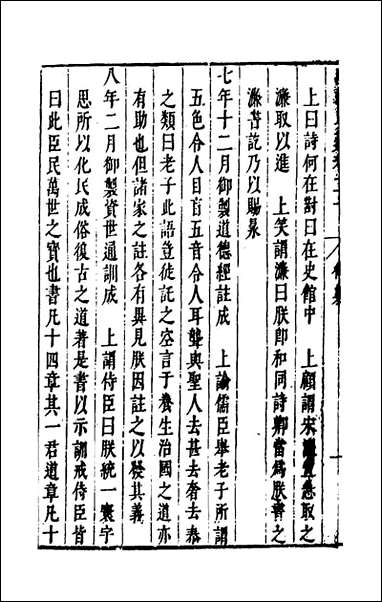 上曰詩何在對曰在史館中　上顧謂宋濂急取之
濂取以進　上笑謂濂曰朕卽和同詩卿當爲朕書之
濂書訖乃以賜㬎
七年十二月御製道德經註成　上諭儒臣舉老子所謂
五色令人目盲五音令人耳聾與聖人去甚去奢去泰
之類曰老子此語豈徒託之空言于養生治國之道亦
有助也但諸家之註各有異見朕因註之以發其義
八年二月御製資世通訓成　上謂侍臣曰朕統一寰宇
思所以化民成俗復古之道著是書以示訓戒侍臣皆
曰此臣民萬世之寶也書凡十四章其一君道章凡十